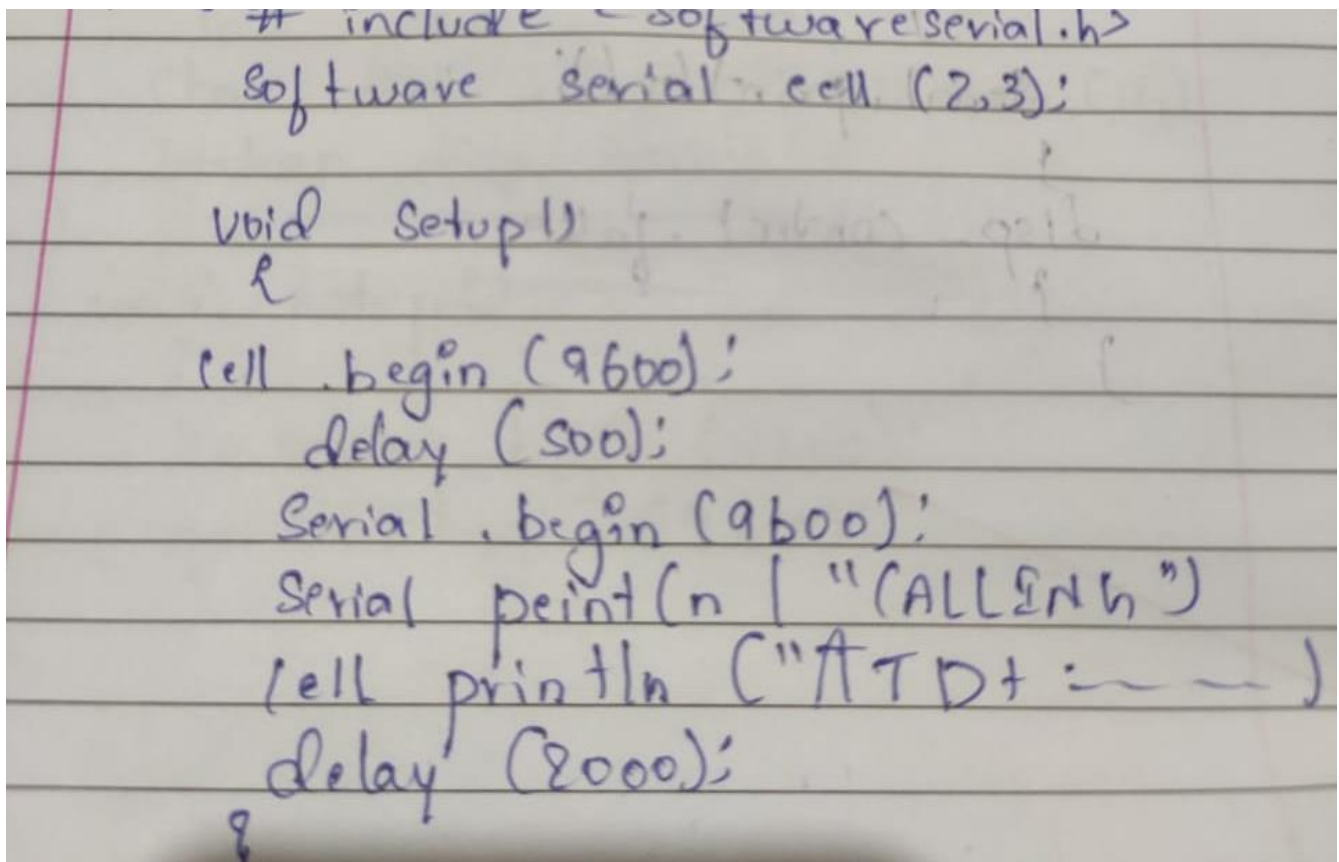 # include < softwareserial.h>
software serial cell (2,3);
void setup()
{
cell .begin (9600);
delay (500);
Serial . begin (9600);
Serial peint(n ( "CALLING")
cell println ("ATD+ :— — —)
delay (2000);
}